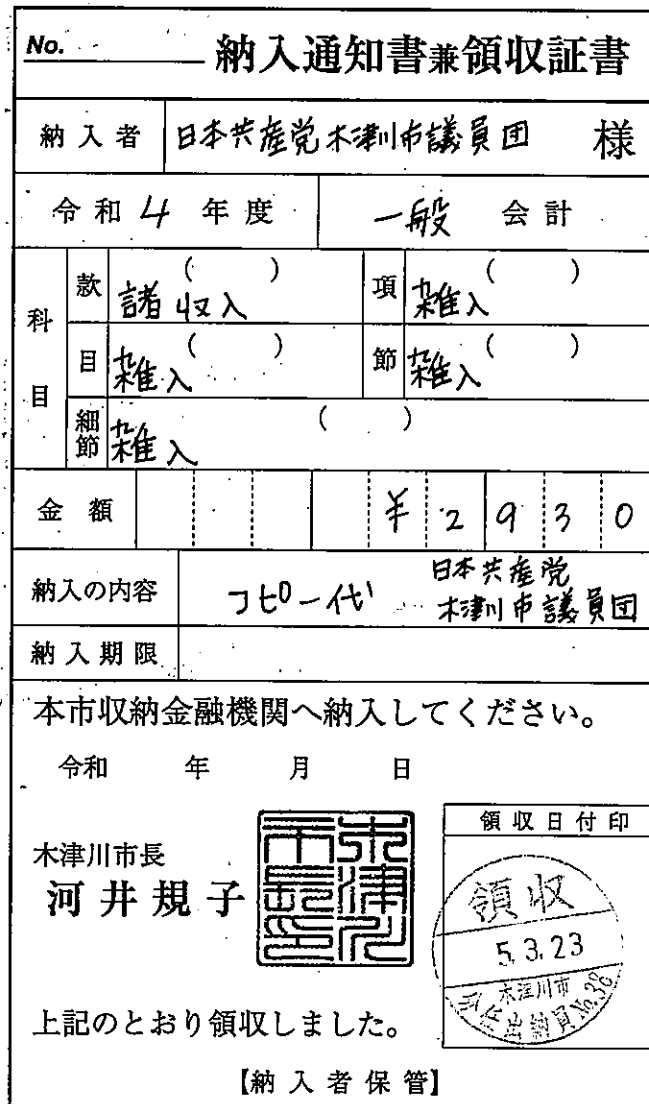 No. 納入通知書兼領収証書
納入者 日本共産党木津川市議員団 様
令和 4 年度 一般 会計
科目
款 ( ) 諸収入 項 ( ) 雑入
目 ( ) 雑入 節 ( ) 雑入
細節 ( ) 雑入
金額 ¥2930
納入の内容 コピー代 日本共産党
木津川市議員団
納入期限
本市収納金融機関へ納入してください。
令和 年 月 日
木津川市長
河井規子
木津川市長印
領収日付印
領収
5.3.23
木津川市
出納員No.38
上記のとおり領収しました。
【納入者保管】